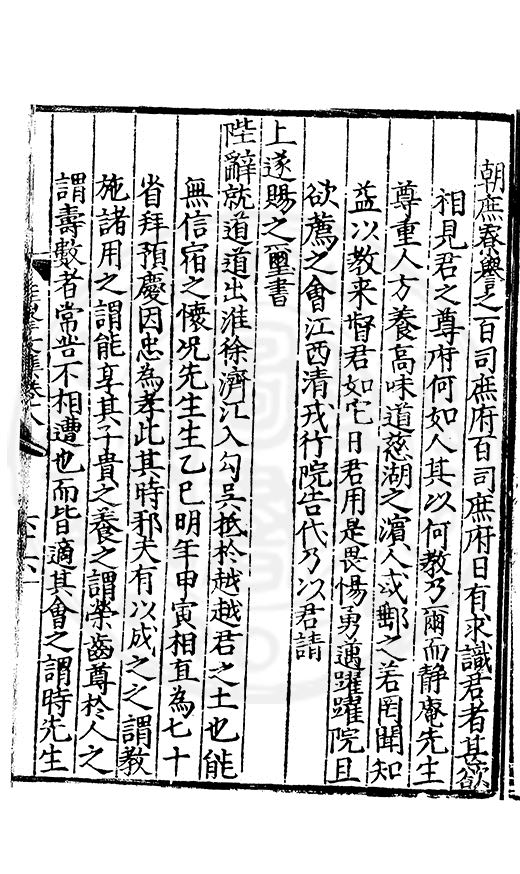 朝庶寮舉之百司庶府百司庶府日有求識君者甚欲
相見君之尊府何如人其以何教乃爾而静庵先生
尊重人方養高味道慈湖之濵人或鄮之若罔聞知
益以教来督君如它日君用是畏惕勇邁躍躍院且
欲薦之會江西清戎行院告代乃以君請
上遂賜之璽書
陛辭就道道出淮徐濟江入勾吴抵於越越君之土也能
無信宿之懷况先生生乙巳明年甲寅相直為七十
省拜預慶因忠為孝此其時邪夫有以成之之謂教
施諸用之謂能享其子貴之養之謂榮齒尊於人之
謂壽數者常若不相遭也而皆適其會之謂時先生